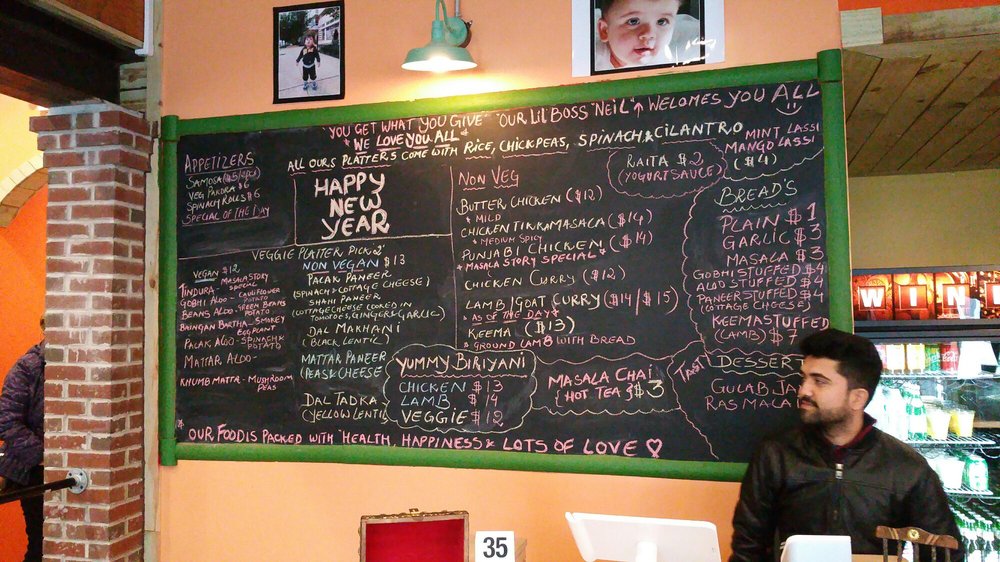 "YOU GET WHAT YOU GIVE" "OUR LIL BOSS "NEIL"↑ WELOMES YOU ALL
* WE LOVE YOU ALL *
ALL OUR,S PLATTERS COME WITH RICE, CHICKPEAS, SPINACH & CILANTRO
APPETIZERS
VEG PAKORA $6
SPINACH ROLLS $6
SPECIAL OF THE DAY
HAPPY
NEW
YEAR
VEGGIE PLATTER PICK 2'
VEGAN $12
TINDURA - MASALA STORY
SPECIAL
GOBHI ALOO - CAULIFLOWER
POTATO
BEANS ALOO - GREEN BEANS
POTATO
BAINGAN BARTHA - SMOKEY
EGG PLANT
PALAK ALOO - SPINACH &
POTATO
MATTAR ALOO -
KHUMB MATTA - MUSHROOM
PEAS
NON VEGAN $13
PALAK PANEER
(SPINACH & COTTAGE CHEESE)
SHAHI PANEER
(COTTAGE CHEESE COOKED IN
TOMOTOES, GINGER & GARLIC)
DAL MAKHANI
(BLACK LENTIL)
MATTAR PANEER
(PEAS & CHEESE
DAL TADKA
(YELLOW LENTIL)
NON VEG
BUTTER CHICKEN ($12)
* MILD
CHICKEN TIKKA MASALA ($14)
* MEDIUM SPICY
PUNJABI CHICKEN ($14)
* MASALA STORY SPECIAL *
CHICKEN CURRY ($12)
LAMB/GOAT CURRY ($14/$15)
* AS OF THE DAY *
KEEMA ($13)
* GROUND LAMB WITH BREAD
YUMMY BIRIYANI
CHICKEN $13
LAMB $14
VEGGIE $12
MASALA CHAI
{ HOT TEA } $3
RAITA $2
(YOGURT SAUCE)
MINT LASSI
MANGO LASSI
($4)
BREAD'S
PLAIN $1
GARLIC $3
MASALA $3
GOBHI STUFFED $4
ALOO STUFFED $4
PANEER STUFFED $4
(COTTAGE CHEESE)
KEEMA STUFFED
(LAMB) $7
DESSERT
GULAB JA
RAS MALA
* OUR FOOD IS PACKED WITH HEALTH, HAPPINESS & LOTS OF LOVE ♡
WIN
35